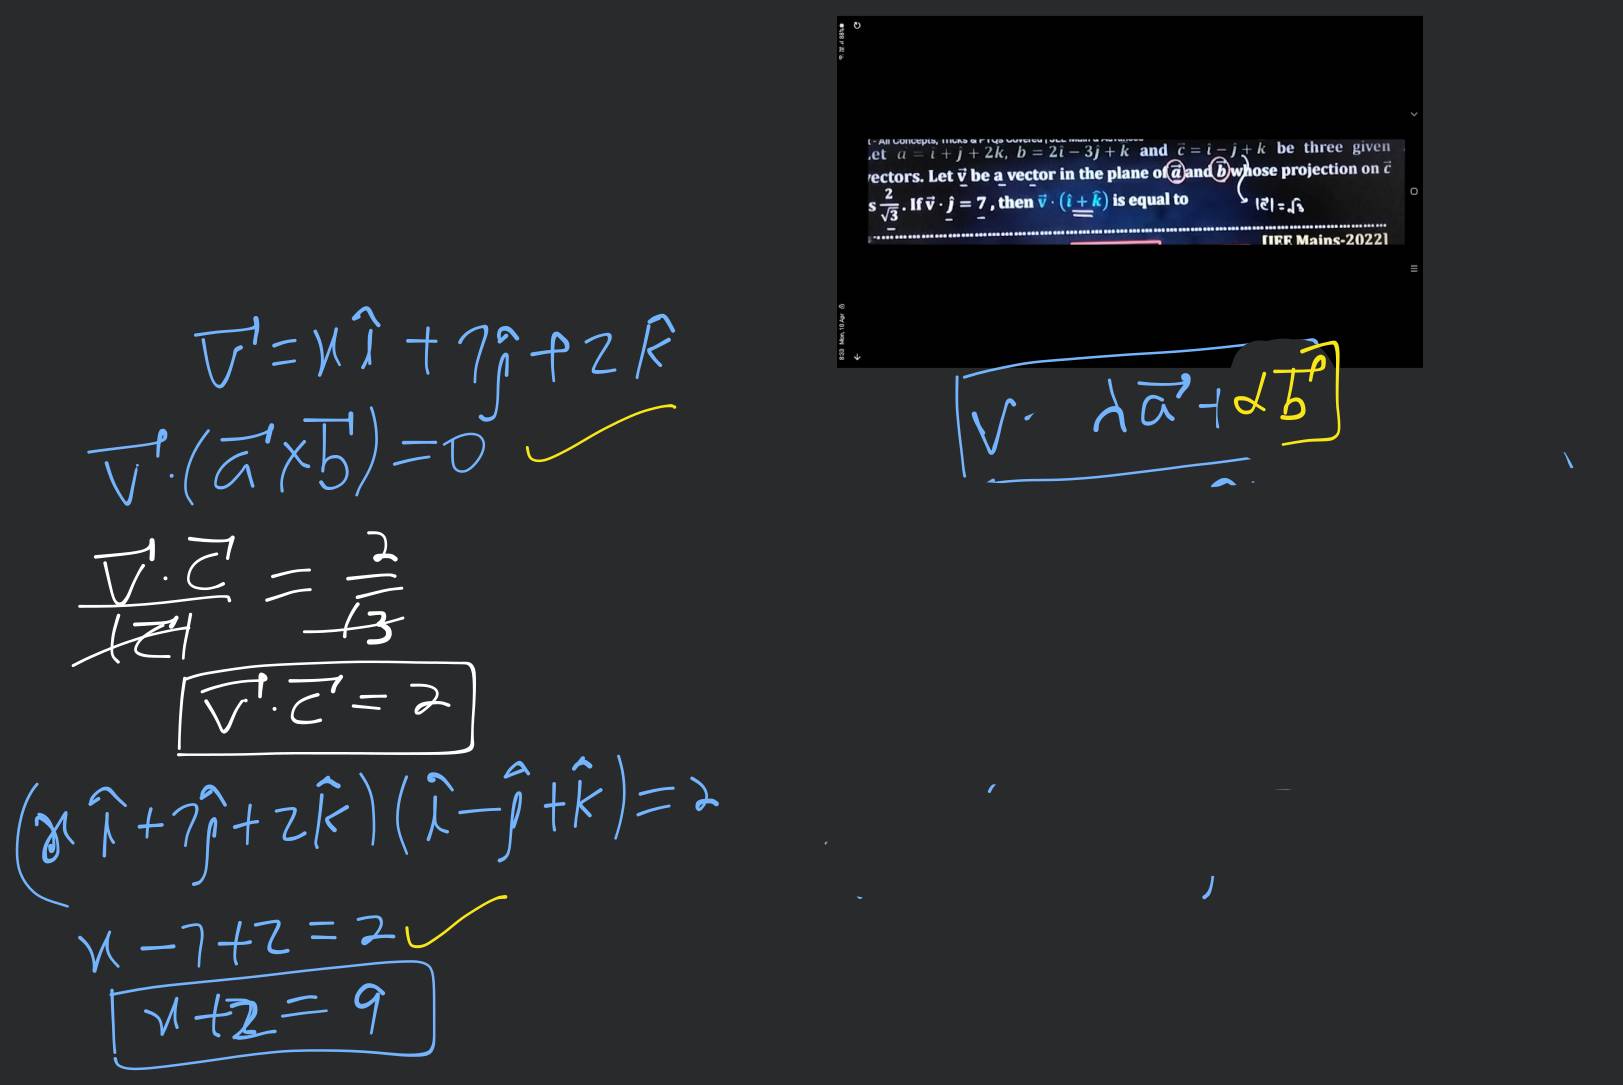 [ - All Concepts, Tricks & PYQs Covered | JEE Main & Advanced
Let a = î + ĵ + 2k, b = 2î − 3ĵ + k and c⃗ = î − ĵ + k be three given
vectors. Let v⃗ be a vector in the plane of a⃗ and b⃗ whose projection on c⃗
s 2/√3. If v⃗ · ĵ = 7, then v⃗ · (î + k̂) is equal to
|c⃗| = √3
[JEE Mains-2022]
8:33 Mon, 18 Apr
88%
v⃗ = xî + 7ĵ + zk̂
v⃗·(a⃗×b⃗) = 0
V· λa⃗ + αb⃗
v⃗·c⃗/|c⃗| = 2/√3
v⃗·c⃗ = 2
(xî + 7ĵ + zk̂)(î − ĵ + k̂) = 2
x − 7 + z = 2
x + z = 9